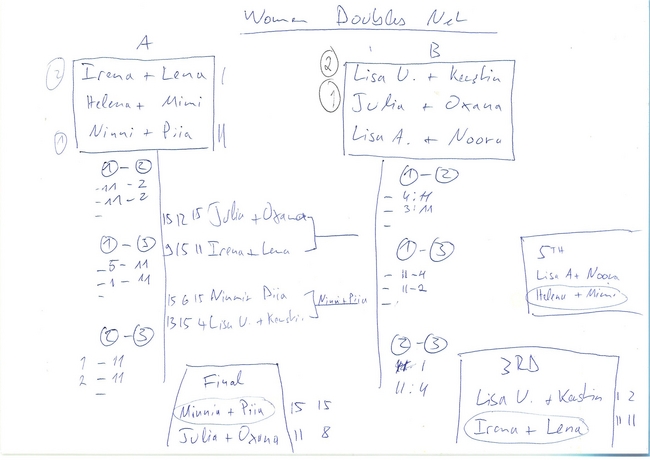 Woman Doubles Net
A
2 Irena + Lena I
Helena + Mimi
1 Ninni + Piia II
B
2 Lisa U. + Kerstin
1 Julia + Oxana
Lisa A. + Noora
1 - 2
- 11 - 2
- 11 - 2
-
1 - 3
- 5 - 11
- 1 - 11
-
2 - 3
1 - 11
2 - 11
-
15 12 15 Julia + Oxana
9 15 11 Irena + Lena
15 6 15 Ninni + Piia
13 15 4 Lisa U. + Kerstin
Ninni + Piia
1 - 2
- 4 : 11
- 3 : 11
-
1 - 3
- 11 - 4
- 11 - 2
-
2 - 3
: 1
11 : 4
5TH
Lisa A + Noora
Helena + Mimi
Final
Minnia + Piia 15 15
Julia + Oxana 11 8
3RD
Lisa U. + Kerstin 1 2
Irena + Lena 11 11